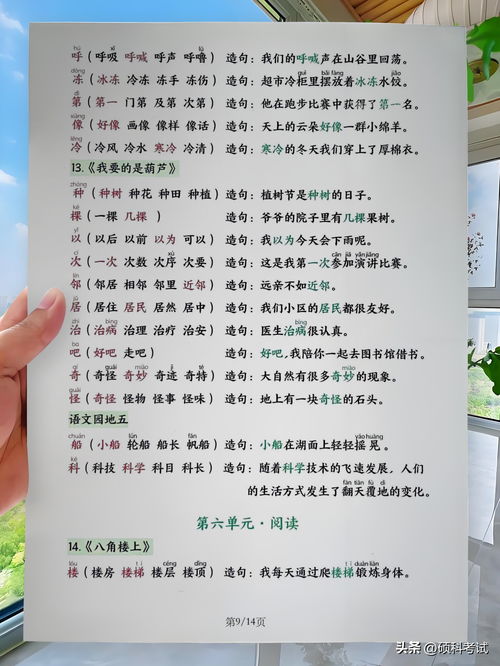 hū xī hǎn lǔ
呼（呼吸 呼喊 呼声 呼噜） 造句：我们的呼喊声在山谷里回荡。
dòng guì bǎi fàng jiǎo
冻（冰冻 冷冻 冻手 冻伤） 造句：超市冷柜里摆放着冰冻水饺。
dì
第（第一 门第 及第 次第） 造句：他在跑步比赛中获得了第一名。
xiàng
像（好像 画像 像样 像话） 造句：天上的云朵好像一群小绵羊。
lěng
冷（冷风 冷水 寒冷 冷清） 造句：寒冷的冬天我们穿上了厚棉衣。
13.《我要的是葫芦》
zhòng
种（种树 种花 种田 种植） 造句：植树节是种树的日子。
kē
棵（一棵 几棵 ） 造句：爷爷的院子里有几棵果树。
yǐ
以（以后 以前 以为 可以） 造句：我以为今天会下雨呢。
cì xù cān jiā yǎn jiǎng
次（一次 次数 次序 次要） 造句：这是我第一次参加演讲比赛。
lín
邻（邻居 相邻 邻里 近邻） 造句：远亲不如近邻。
jū
居（居住 居民 居然 居中） 造句：我们小区的居民都很友好。
zhì bìng bìng
治（治病 治理 治疗 治安） 造句：医生治病很认真。
ba
吧（好吧 走吧） 造句：好吧，我陪你一起去图书馆借书。
qí guài miào jì miào
奇（奇怪 奇妙 奇迹 奇特） 造句：大自然有很多奇妙的现象。
guài
怪（奇怪 怪物 怪事 怪味） 造句：地上有一块奇怪的石头。
语文园地五
chuán lún fān yáo huàng
船（小船 轮船 船长 帆船） 造句：小船在湖面上轻轻摇晃。
kē
科（科技 科学 科目 科长） 造句：随着科学技术的飞速发展，人们
fān tiān fù dì
的生活方式发生了翻天覆地的变化。
第六单元·阅读
14.《八角楼上》
lóu tī céng dǐng tī duàn liàn
楼（楼房 楼梯 楼层 楼顶） 造句：我每天通过爬楼梯锻炼身体。
第9/14页
头条 @硕科考试